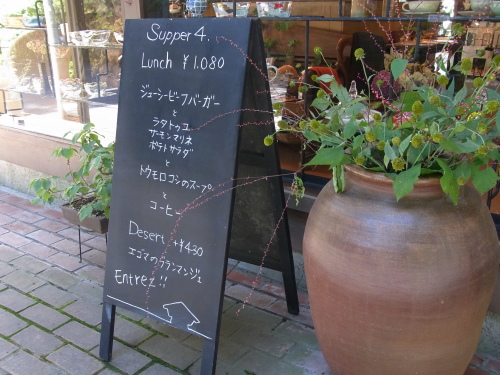 Supper 4.
Lunch ¥1.080
ジューシービーフバーガー
と
ラタトゥユ
サーモンマリネ
ポテトサラダ
と
トウモロコシのスープ
と
コーヒー
Desert +¥430
エゴマのブランマンジェ
Entrez!!